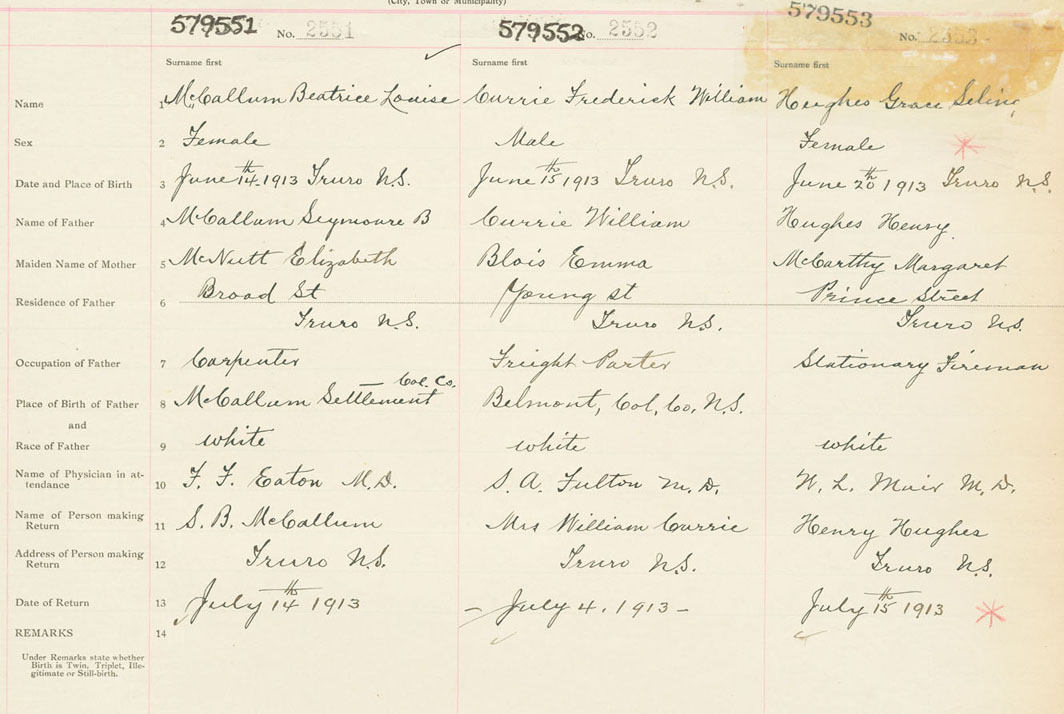 (City, Town or Municipality)
579551 No. 2551 579552 No. 2552 579553 No. 2553
Surname first Surname first Surname first
Name 1 McCallum Beatrice Louise Currie Frederick William Hughes Grace
Sex 2 Female Male Female
Date and Place of Birth 3 June 14th 1913 Truro N.S. June 15th 1913 Truro N.S. June 20th 1913 Truro N.S.
Name of Father 4 McCallum Seymoure B Currie William Hughes Henry
Maiden Name of Mother 5 McNutt Elizabeth Blois Emma McCarthy Margaret
Residence of Father 6 Broad St Young St Prince Street
Truro N.S. Truro N.S. Truro N.S.
Occupation of Father 7 Carpenter Freight Porter Stationary Fireman
Place of Birth of Father 8 McCallum Settlement Col. Co. Belmont, Col, Co, N.S.
and
Race of Father 9 white white white
Name of Physician in at-
tendance 10 F. F. Eaton M.D. S. A. Fulton M.D. W. L. Muir M.D.
Name of Person making
Return 11 S. B. McCallum Mrs William Currie Henry Hughes
Address of Person making
Return 12 Truro N.S. Truro N.S. Truro N.S.
Date of Return 13 July 14th 1913 – July 4. 1913 – July 15th 1913
REMARKS 14
Under Remarks state whether
Birth is Twin, Triplet, Ille-
gitimate or Still-birth.